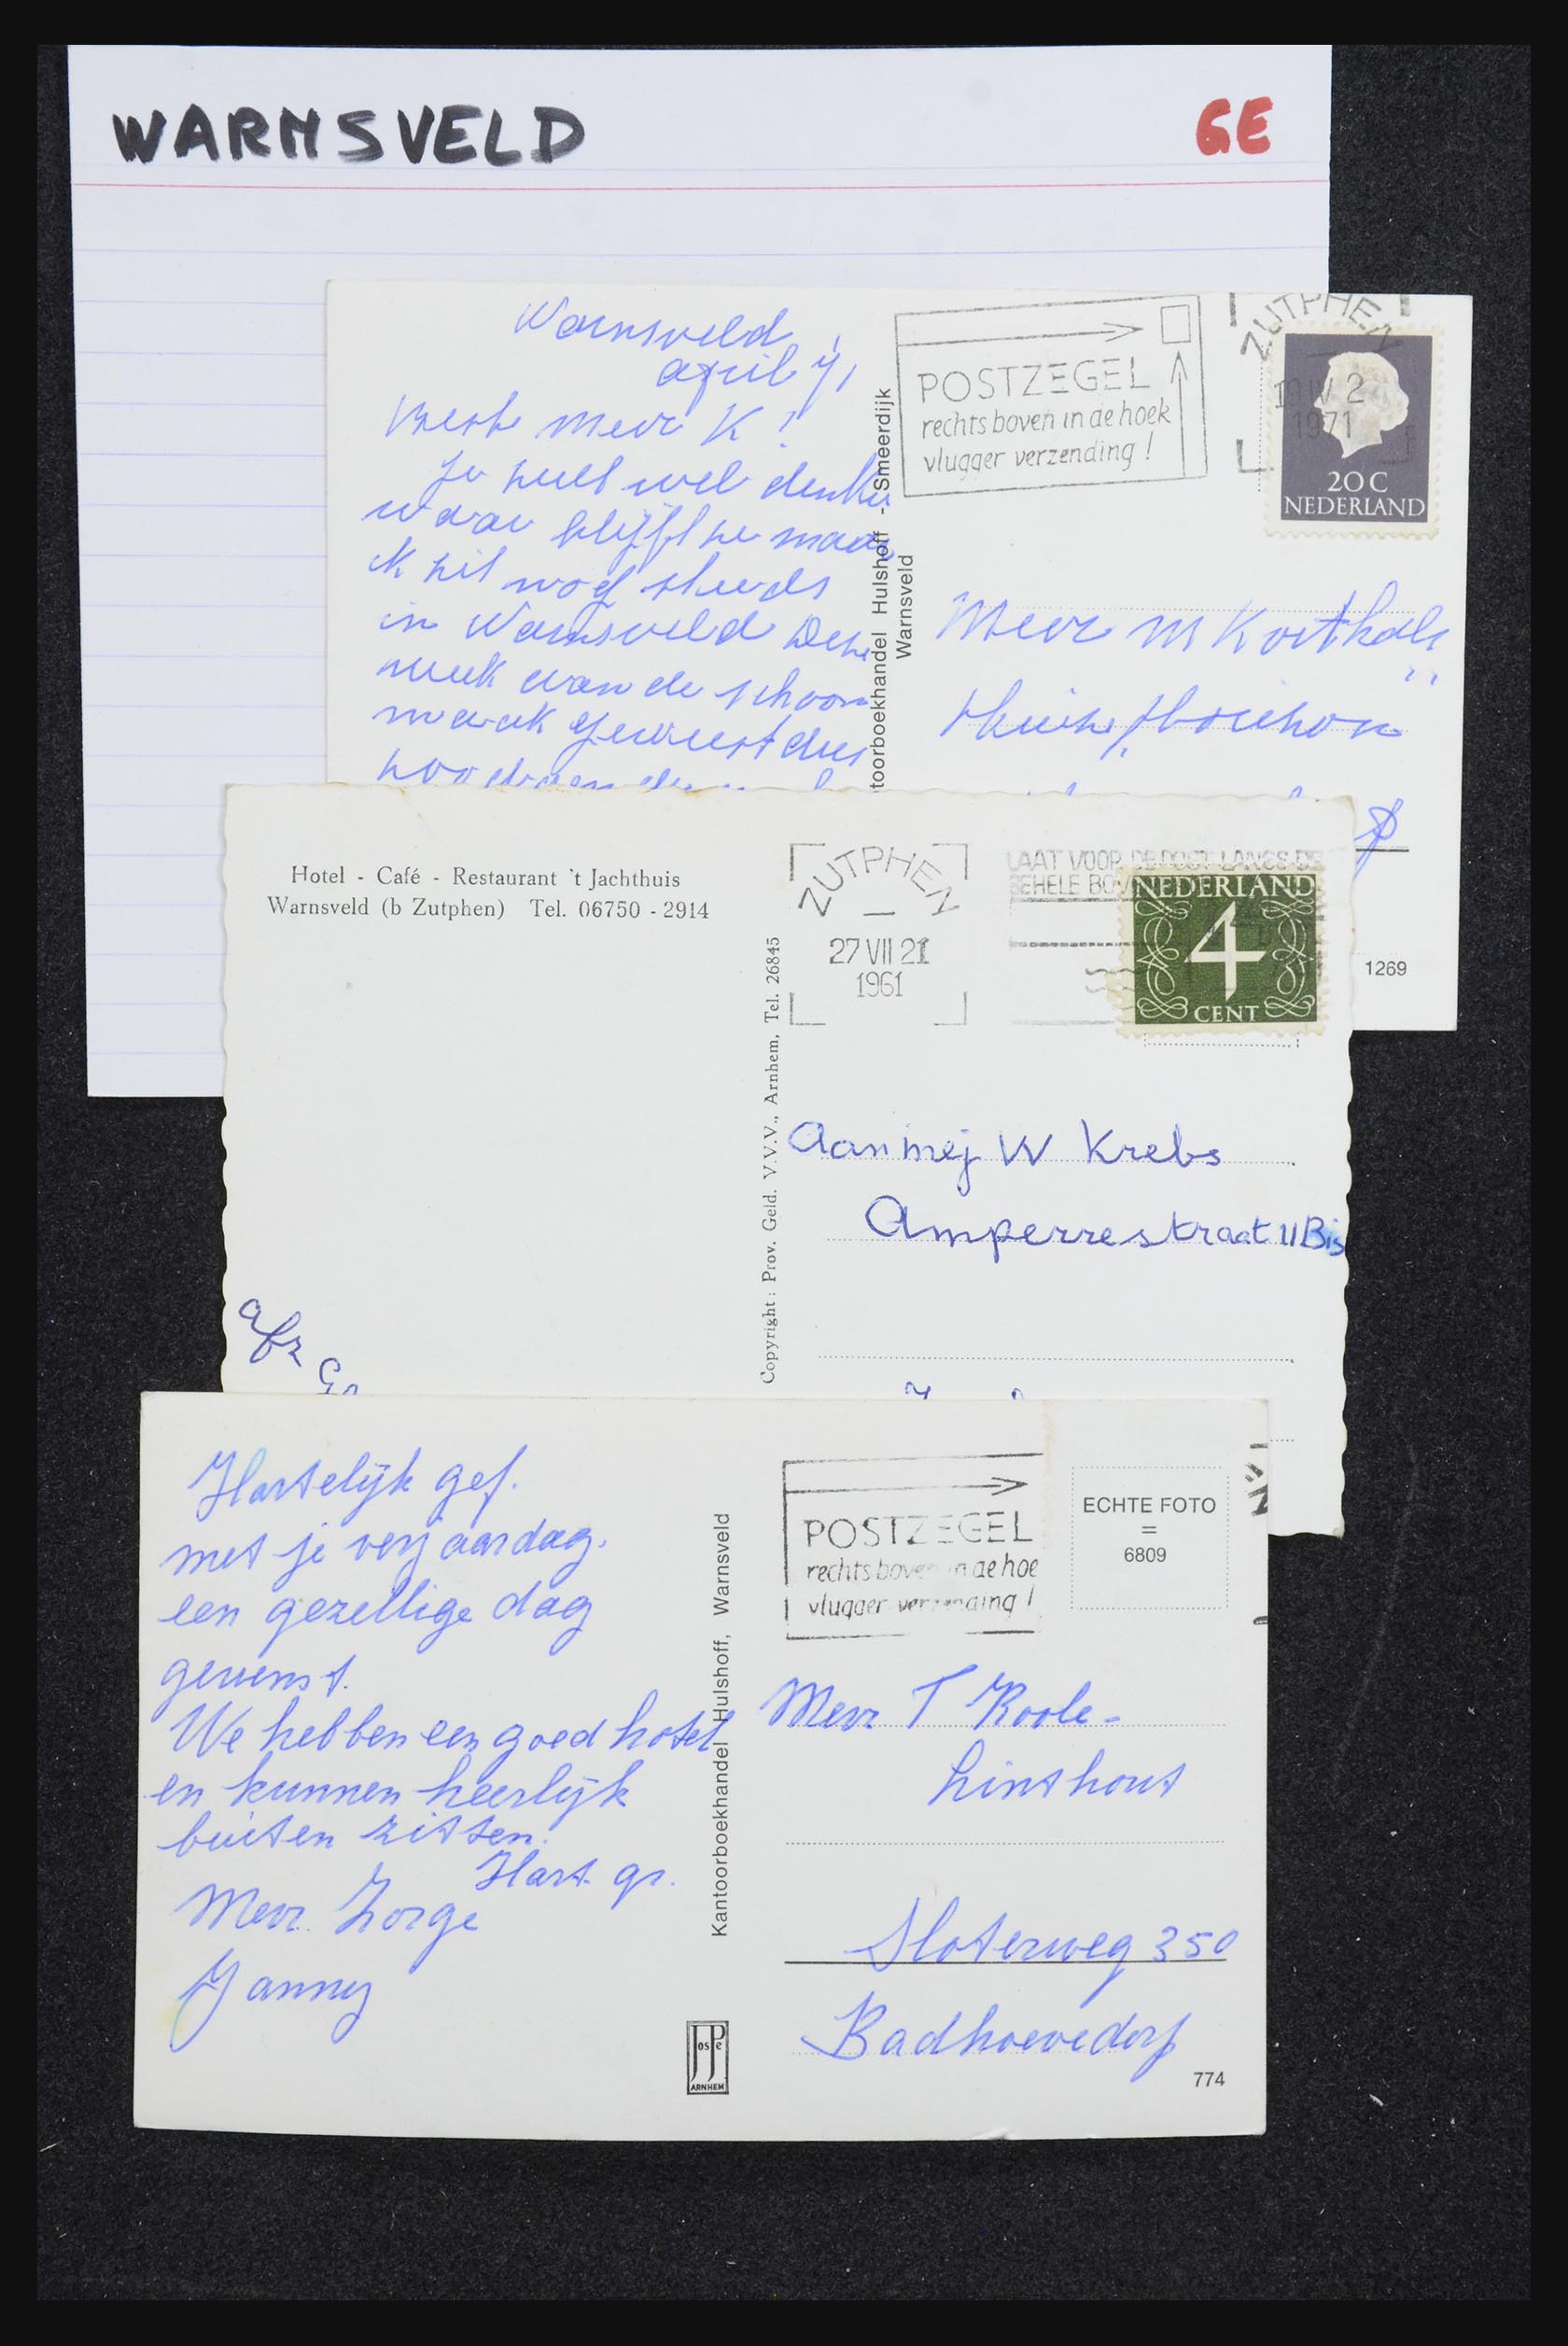 WARNSVELD
GE
Warnsveld,
april 71
Beste Mevr K!
Je zult wel denken
waar blijft ze maar
ik zit nog steeds
in Warnsveld Deze
week aan de schoon
maak geweest dus
Kantoorboekhandel Hulshoff - Smeerdijk
Warnsveld
POSTZEGEL
rechts boven in de hoek
vlugger verzending!
ZUTPHEN
19 IV 2
1971
20 C
NEDERLAND
Mevr M Korthals
1269
Hotel - Café - Restaurant 't Jachthuis
Warnsveld (b Zutphen) Tel. 06750 - 2914
afz
Copyright: Prov. Geld. V.V.V., Arnhem, Tel. 26845
ZUTPHEN
27 VII 21
1961
LAAT VOOR DE POST LANGS DE
GEHELE BOV
NEDERLAND
4
CENT
Aan mej W Krebs
Amperrestraat 11 Bis
Hartelijk gef.
met je verjaardag.
een gezellige dag
gewenst.
We hebben een goed hotel
en kunnen heerlijk
buiten zitten.
Hart. gr.
Mevr. Zorge
Janny
Kantoorboekhandel Hulshoff, Warnsveld
JosPe
ARNHEM
POSTZEGEL
rechts boven in de hoe
vlugger verzending!
ECHTE FOTO
=
6809
Mevr T Roole-
Linthout
Sloterweg 350
Badhoevedorp
774